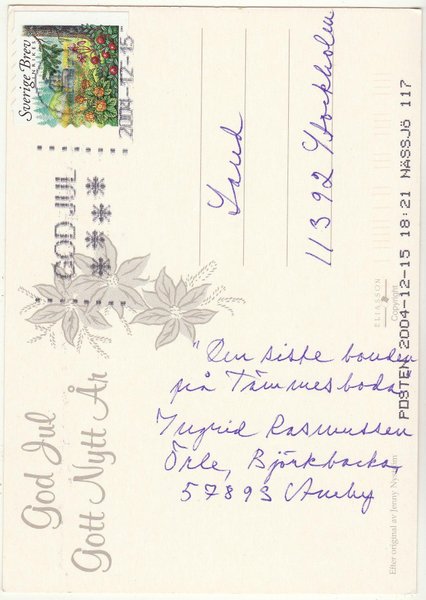 Sverige Brev
INRIKES
2004-12-15
GOD JUL
Sand
11392 Stockholm
POSTEN 2004-12-15 18:21 NÄSSJÖ 117
ELIASSON
Copyright
"Den siste bonden
på Tämmesboda"
Ingrid Rasmussen
Örle, Björkbacka
57893 Aneby
God Jul
Gott Nytt År
Efter original av Jenny Nyström